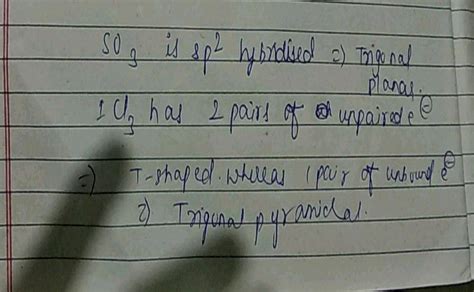 SO3 is sp2 hybridised => Trigonal
planar.
ICl3 has 2 pairs of unpaired e⊖
=> T-shaped. whereas 1 pair of unbound e⊖
=> Trigonal pyramidal.